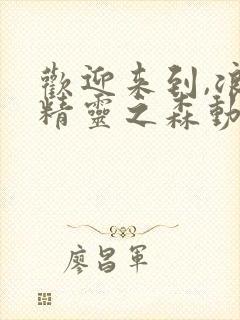 歡迎来到,浪
精靈之森動
廖昌軍